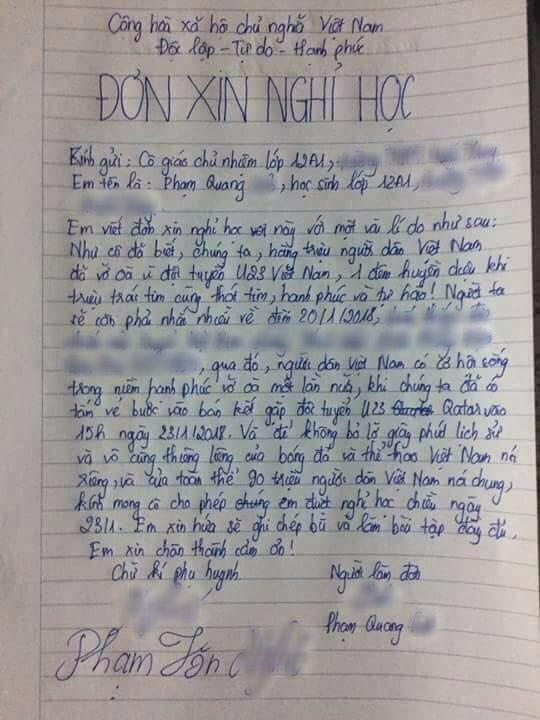 Cộng hoà xã hội chủ nghĩa Việt Nam
Độc lập - Tự do - Hạnh phúc
ĐƠN XIN NGHỈ HỌC
Kính gửi: Cô giáo chủ nhiệm lớp 12A1,
Em tên là: Phạm Quang , học sinh lớp 12A1,
Em viết đơn xin nghỉ học này với một vài lí do như sau:
Như cô đã biết, chúng ta, hàng triệu người dân Việt Nam
đã vỡ oà vì đội tuyển U23 Việt Nam, 1 đêm huyền diệu khi
triệu trái tim cùng thót tim, hạnh phúc và tự hào! Người ta
sẽ còn phải nhắc nhiều về đêm 20/1/2018,
, qua đó, người dân Việt Nam có cơ hội sống
trong niềm hạnh phúc vỡ oà một lần nữa, khi chúng ta đã có
tấm vé bước vào bán kết gặp đội tuyển U23 Qatar vào
15h ngày 23/1/2018. Và để không bỏ lỡ giây phút lịch sử
và vô cùng thiêng liêng của bóng đá và thể thao Việt Nam nói
riêng, và của toàn thể 90 triệu người dân Việt Nam nói chung,
kính mong cô cho phép em được nghỉ học chiều ngày
23/1. Em xin hứa sẽ ghi chép bù và làm bài tập đầy đủ.
Em xin chân thành cảm ơn!
Chữ kí phụ huynh
Người làm đơn
Phạm Quang
Phạm Tấn